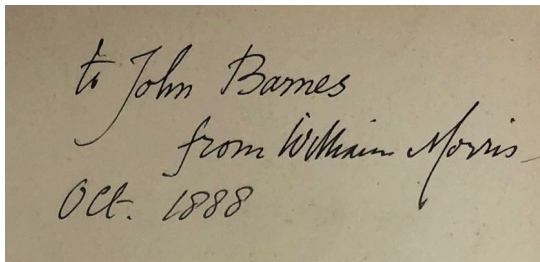 to John Barnes
from William Morris
Oct. 1888